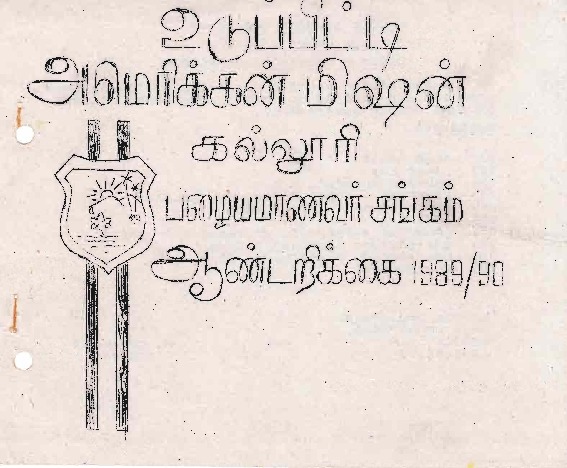 உடுப்பிட்டி
அமெரிக்கன் மிஷன்
கல்லூரி
பழையமாணவர் சங்கம்
ஆண்டறிக்கை 1989/90